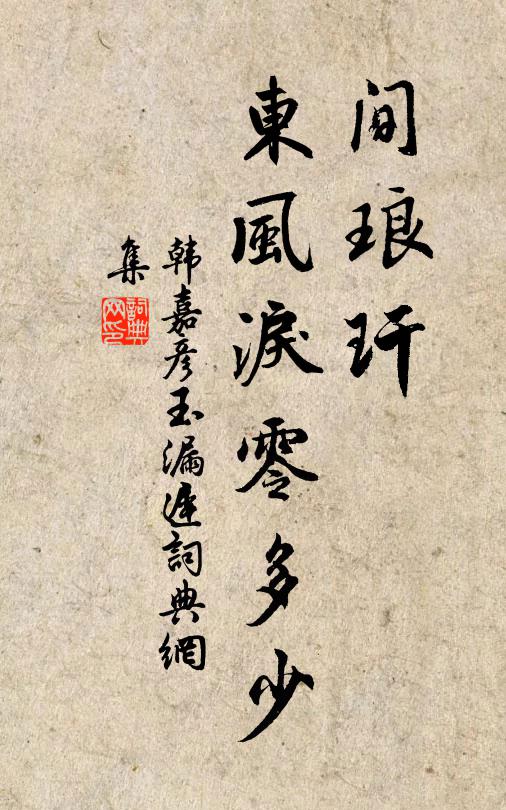 间琅玕
東風淚零多少
韩嘉彦玉漏遲詞典網
集
詞典
网印